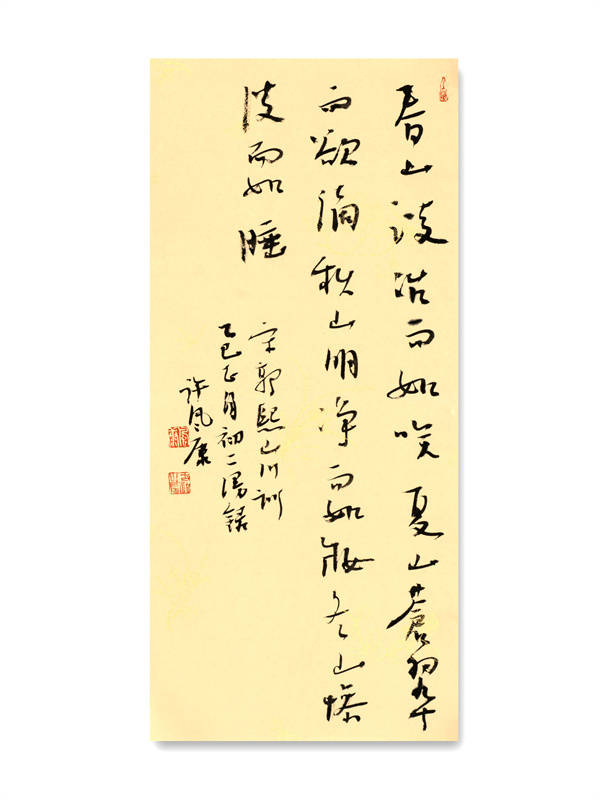 春山淡冶而如咲夏山蒼翠
而欲滴秋山明净而如妝冬山惨
淡而如睡
宋郭熙山川訓
乙巳正月初二錄
許风康